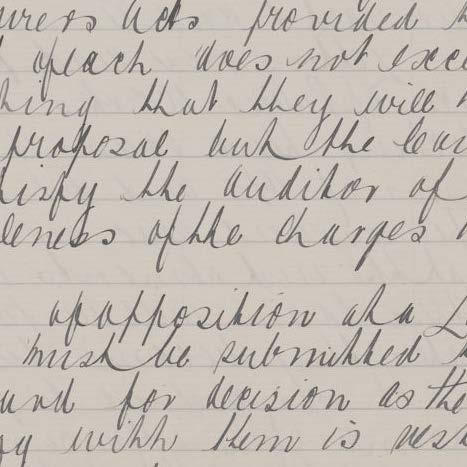 urers Acts provided
of each does not exce
hing that they will
proposal but the
tisfy the auditor of
leness of the charges
of opposition at a L
must be submitted
und for decision as the
with them is